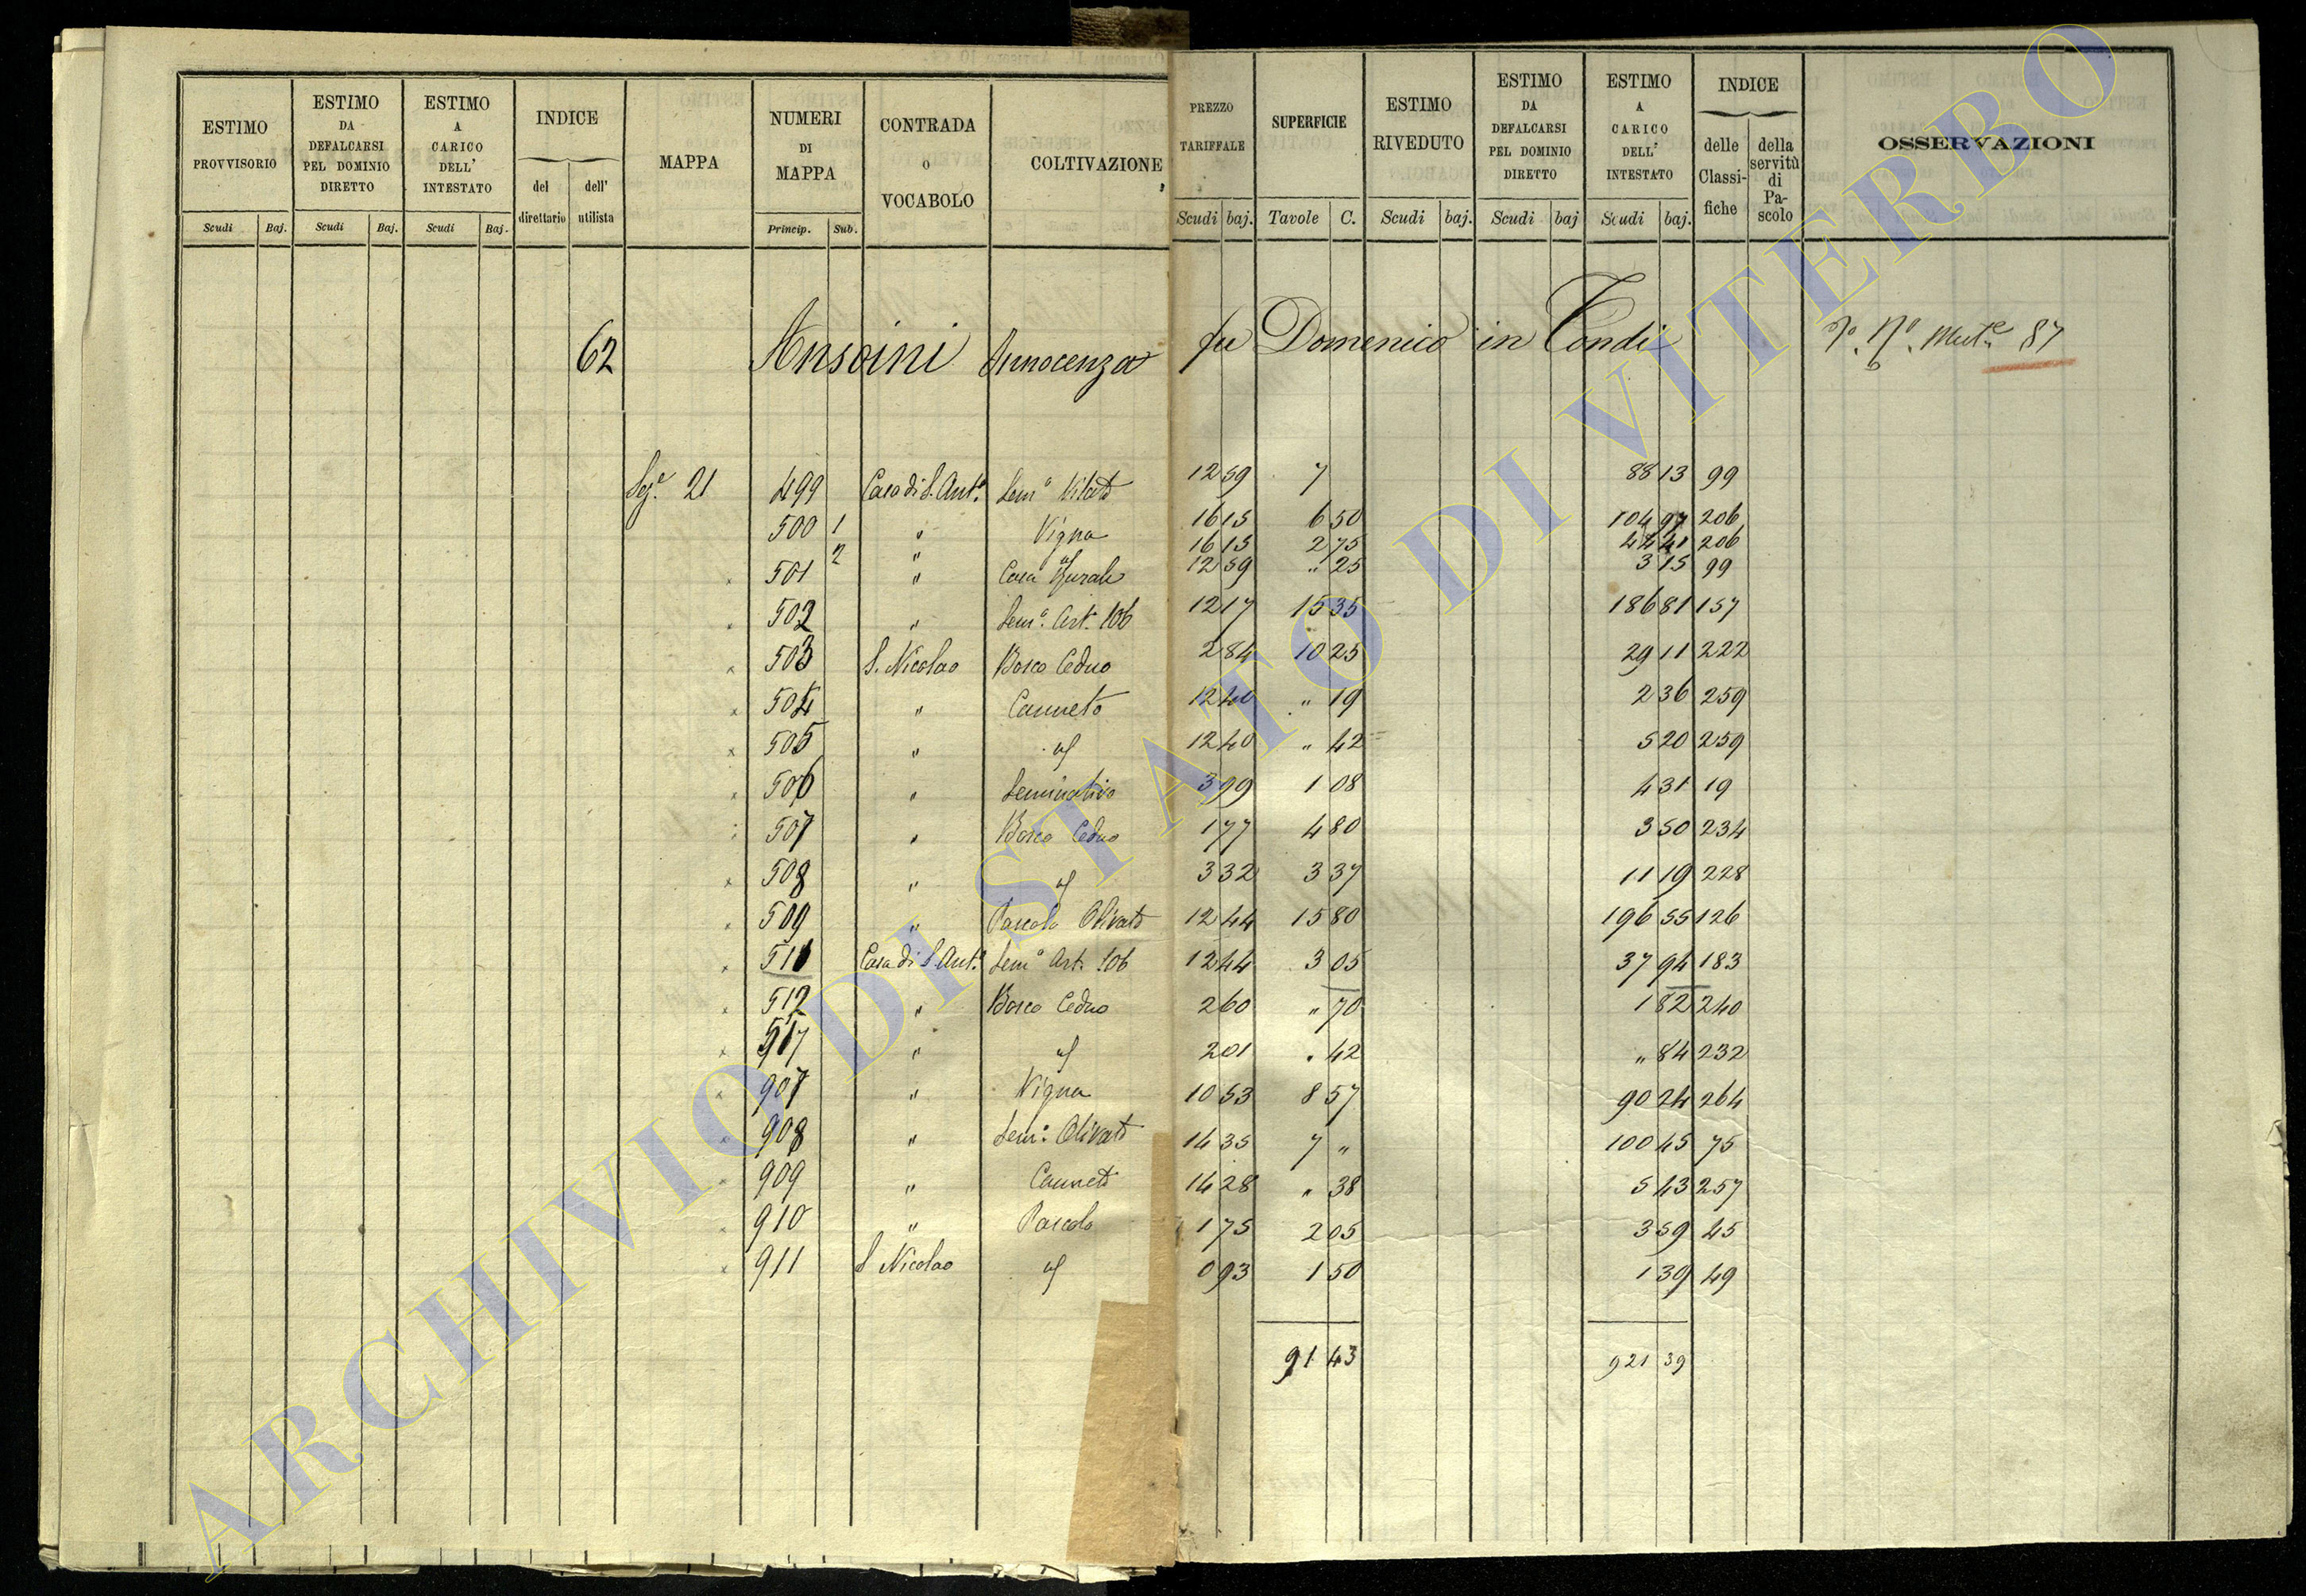 ESTIMO PROVVISORIO Scudi Baj.
ESTIMO DA DEFALCARSI PEL DOMINIO DIRETTO Scudi Baj.
ESTIMO A CARICO DELL' INTESTATO Scudi Baj.
INDICE del direttario dell' utilista
MAPPA
NUMERI DI MAPPA Princip. Sub.
CONTRADA o VOCABOLO
COLTIVAZIONE
PREZZO TARIFFALE Scudi baj.
SUPERFICIE Tavole C.
ESTIMO RIVEDUTO Scudi baj.
ESTIMO DA DEFALCARSI PEL DOMINIO DIRETTO Scudi baj
ESTIMO A CARICO DELL' INTESTATO Scudi baj.
INDICE delle Classifiche della servitù di Pascolo
OSSERVAZIONI
62 Ansoini Innocenza fu Domenico in Tondi Mut.e 87
Seg.e 21 499 Casa di S. Ant.o Sem.o Vitato 12 59 7 88 13 99
500 1 " Vigna 16 15 6 50 104 97 206
2 " " 16 15 2 75 44 41 206
501 " Casa Rurale 12 59 " 25 3 15 99
502 " Sem.o Art. 106 12 17 15 35 186 81 157
503 S. Nicolao Bosco Ceduo 2 84 10 25 29 11 222
504 " Canneto 12 40 " 19 2 36 259
505 " " 12 40 " 42 5 20 259
506 " Seminativo 3 99 1 08 4 31 19
507 " Bosco Ceduo 1 77 4 80 3 50 234
508 " " 3 32 3 37 11 19 228
509 " Pascolo Olivato 12 44 15 80 196 55 126
511 Casa di S. Ant.o Sem.o Art. 106 12 44 3 05 37 94 183
512 " Bosco Ceduo 2 60 " 70 1 82 240
517 " " 2 01 " 42 " 84 232
907 " Vigna 10 53 8 57 90 24 264
908 " Sem.o Olivato 14 35 7 " 100 45 75
909 " Canneto 14 28 " 38 5 43 257
910 " Pascolo 1 75 2 05 3 59 45
911 S Nicolao " 0 93 1 50 1 39 49
91 43 921 39
ARCHIVIO DI STATO DI VITERBO